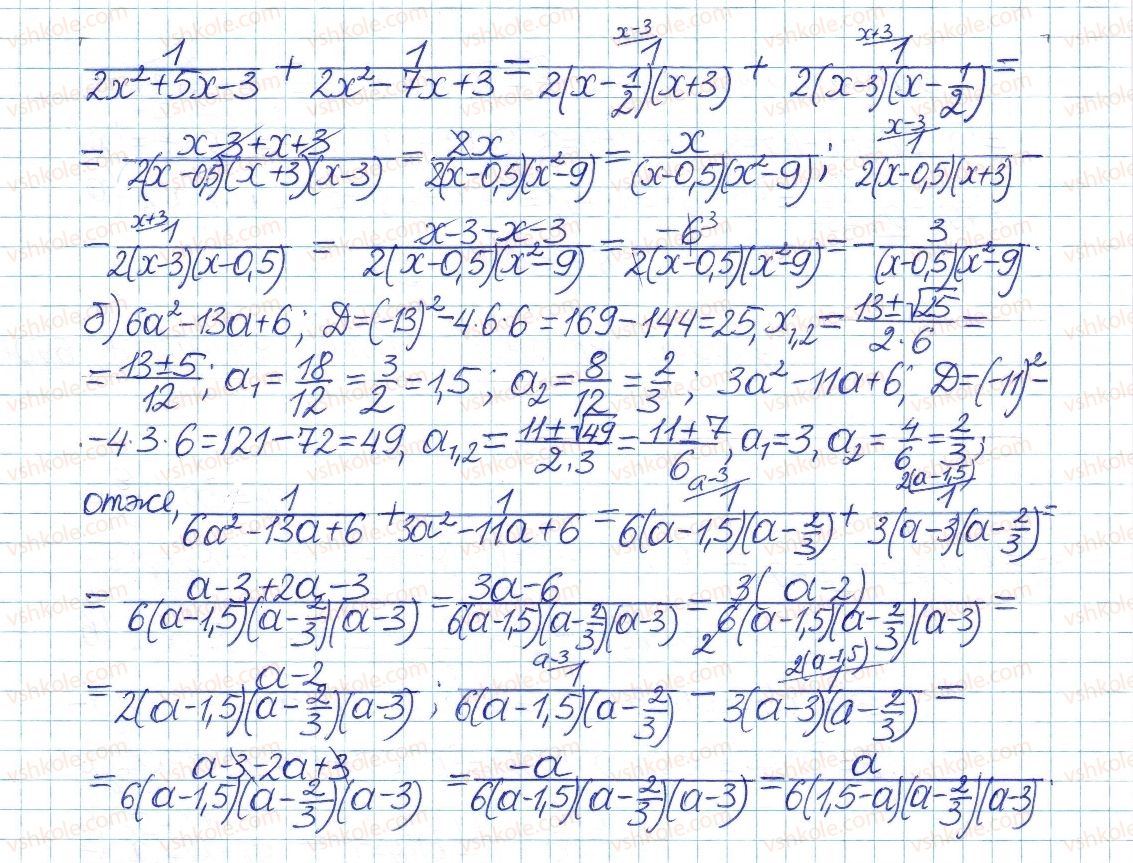 1/(2x²+5x-3) + 1/(2x²-7x+3) = (x-3) 1/(2(x-1/2)(x+3)) + (x+3) 1/(2(x-3)(x-1/2)) =
= (x-3+x+3)/(2(x-0,5)(x+3)(x-3)) = 2x/(2(x-0,5)(x²-9)) = x/((x-0,5)(x²-9)); (x-3) 1/(2(x-0,5)(x+3)) -
- (x+3) 1/(2(x-3)(x-0,5)) = (x-3-x-3)/(2(x-0,5)(x²-9)) = -6³/(2(x-0,5)(x²-9)) = -3/((x-0,5)(x²-9)).
б) 6a²-13a+6; D=(-13)²-4·6·6=169-144=25, x₁,₂ = (13±√25)/(2·6) =
= (13±5)/12; a₁ = 18/12 = 3/2 = 1,5; a₂ = 8/12 = 2/3; 3a²-11a+6; D=(-11)²-
-4·3·6=121-72=49, a₁,₂ = (11±√49)/(2·3) = (11±7)/6, a₁=3, a₂ = 4/6 = 2/3;
отже, 1/(6a²-13a+6) + 1/(3a²-11a+6) = (a-3) 1/(6(a-1,5)(a-2/3)) + 2(a-1,5) 1/(3(a-3)(a-2/3)) =
= (a-3+2a-3)/(6(a-1,5)(a-2/3)(a-3)) = (3a-6)/(6(a-1,5)(a-2/3)(a-3)) = 3(a-2)/(2 6(a-1,5)(a-2/3)(a-3)) =
= (a-2)/(2(a-1,5)(a-2/3)(a-3)); (a-3) 1/(6(a-1,5)(a-2/3)) - 2(a-1,5) 1/(3(a-3)(a-2/3)) =
= (a-3-2a+3)/(6(a-1,5)(a-2/3)(a-3)) = -a/(6(a-1,5)(a-2/3)(a-3)) = a/(6(1,5-a)(a-2/3)(a-3)).
vshkole.com